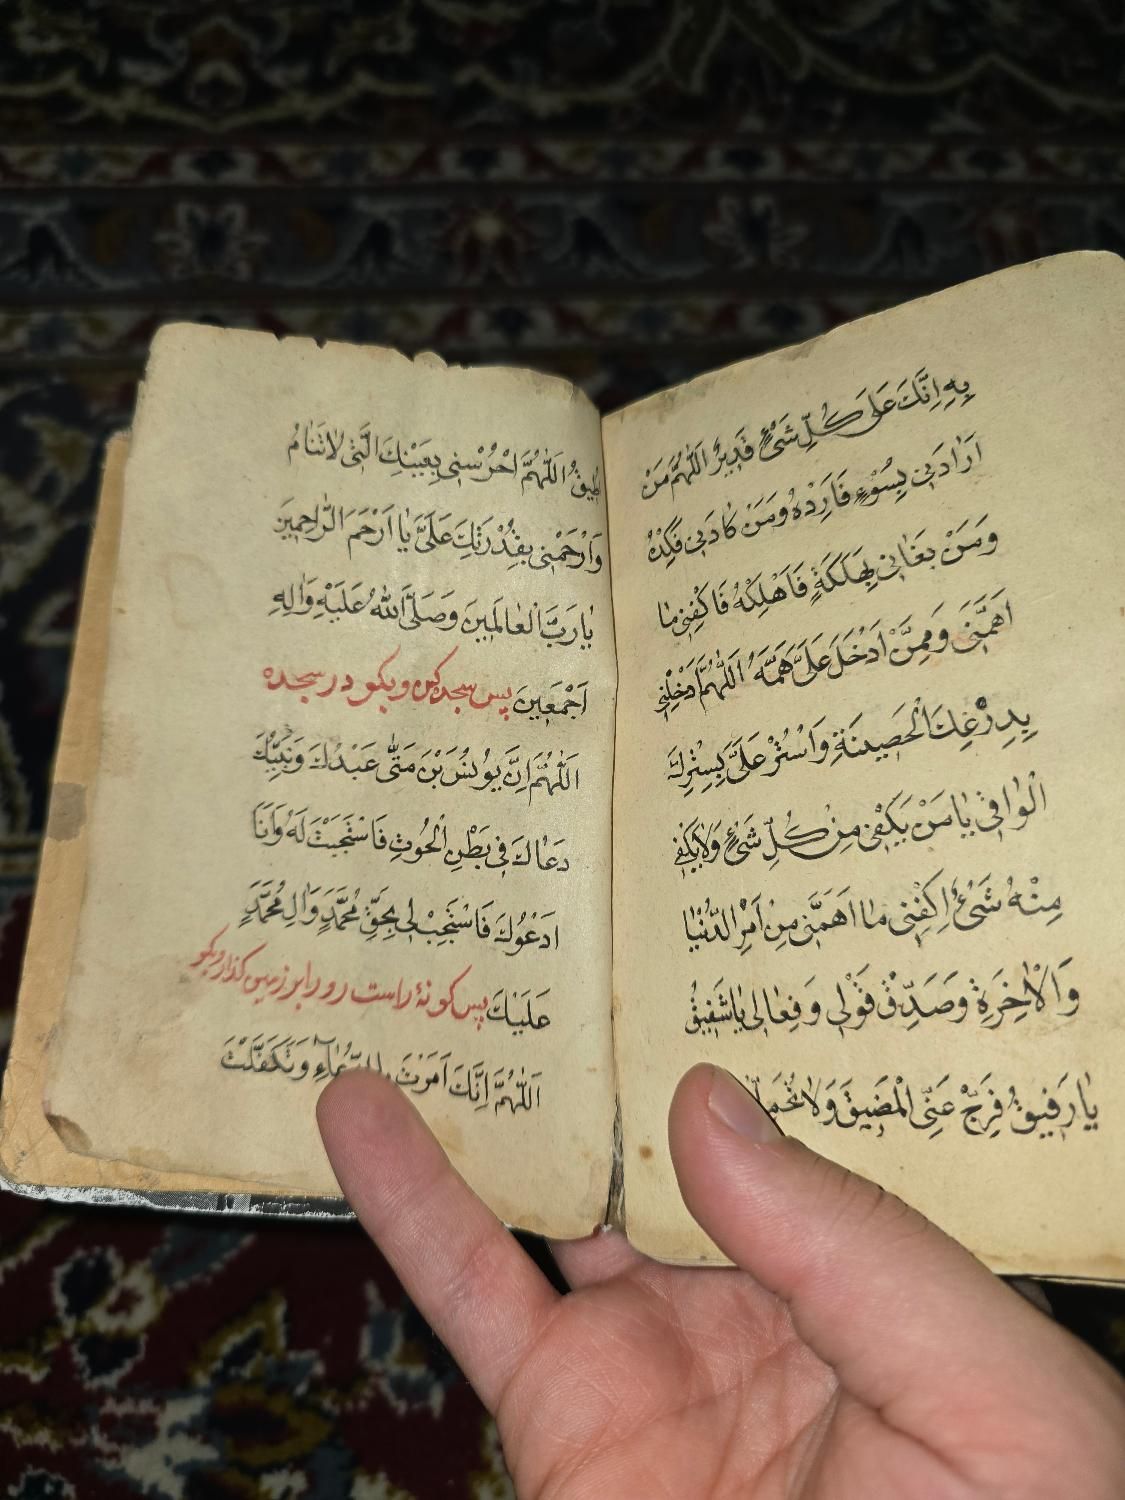 بِهِ اِنَّكَ عَلىَ كُلِّ شَىْءٍ قَدِيرٌ اَللّٰهُمَّ مَنْ
اَرٰادَنِى بِسُوْءٍ فَارِدْهُ وَمَنْ كٰادَنِى فَكِدْهُ
وَمَنْ بَغٰانِى بِهَلَكَةٍ فَاَهْلِكْهُ فَاكْفِنِى مٰا
اَهَمَّنِى وَمِمَّنْ اَدْخَلَ عَلَىَّ هَمَّهُ اَللّٰهُمَّ اَدْخِلْنِى
بِدِرْعِكَ الْحَصِينَةِ وَاسْتُرْ عَلَىَّ بِسِتْرِكَ
الْوٰافِى يٰا مَنْ يَكْفِى مِنْ كُلِّ شَىْءٍ وَلاٰ يَكْفِى
مِنْهُ شَىْءٌ اِكْفِنِى مٰا اَهَمَّنِى مِنْ اَمْرِ الدُّنْيٰا
وَالْاٰخِرَةِ وَصَدِّقْ قَوْلِى وَفِعٰالِى يٰا شَفِيقُ
يٰا رَفِيقُ فَرِّجْ عَنِّى الْمَضِيقَ وَلاٰ
اُطِيقُ اَللّٰهُمَّ احْرُسْنِى بِعَيْنِكَ الَّتِى لاٰتَنٰامُ
وَارْحَمْنِى بِقُدْرَتِكَ عَلَىَّ يٰا اَرْحَمَ الرّٰاحِمِينَ
يٰا رَبَّ الْعٰالَمِينَ وَصَلَّى اللّٰهُ عَلَيْهِ وَاٰلِهِ
اَجْمَعِينَ پس سجده كن و بگو در سجده
اَللّٰهُمَّ اِنَّ يُونُسَ بْنَ مَتّٰى عَبْدُكَ وَنَبِيُّكَ
دَعٰاكَ فِى بَطْنِ الْحُوتِ فَاسْتَجَبْتَ لَهُ وَاَنَا
اَدْعُوكَ فَاسْتَجِبْ لِى بِحَقِّ مُحَمَّدٍ وَاٰلِ مُحَمَّدٍ
عَلَيْكَ پس گونهٔ راست رو را بر زمين گذار و بگو
اَللّٰهُمَّ اِنَّكَ اَمَرْتَ بِالدُّعٰاءِ وَتَكَفَّلْتَ